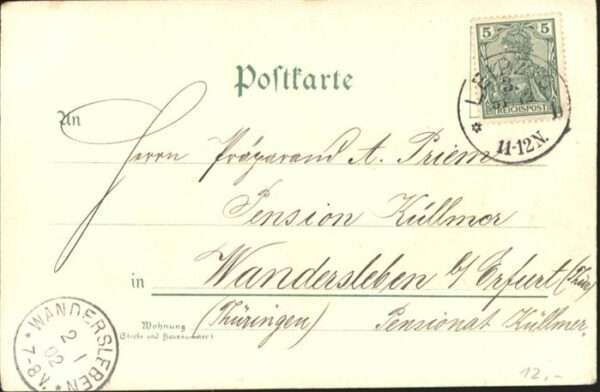 5 5
REICHSPOST
LEIPZIG
11-12N.
Postkarte
An
Herrn Präparand A. Priem
Pension Küllmer
in Wandersleben b/ Erfurt (Thür)
(Thüringen) Pensionat Küllmer.
Wohnung
(Straße und Hausnummer)
WANDERSLEBEN
2 1
02
* 7-8V. *
12.-